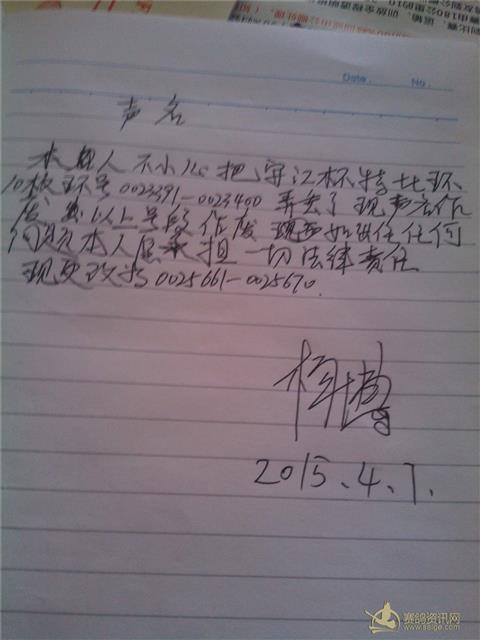 Date. No.
声名
本人不小心把宁江杯特比环
10枚环号0023391-0023400弄丢了现声名作
废 以上号段作废 现如出任何
问题本人愿承担一切法律责任
现更改为0025661-0025670.
2015.4.7.
赛鸽资讯网
www.saige.com